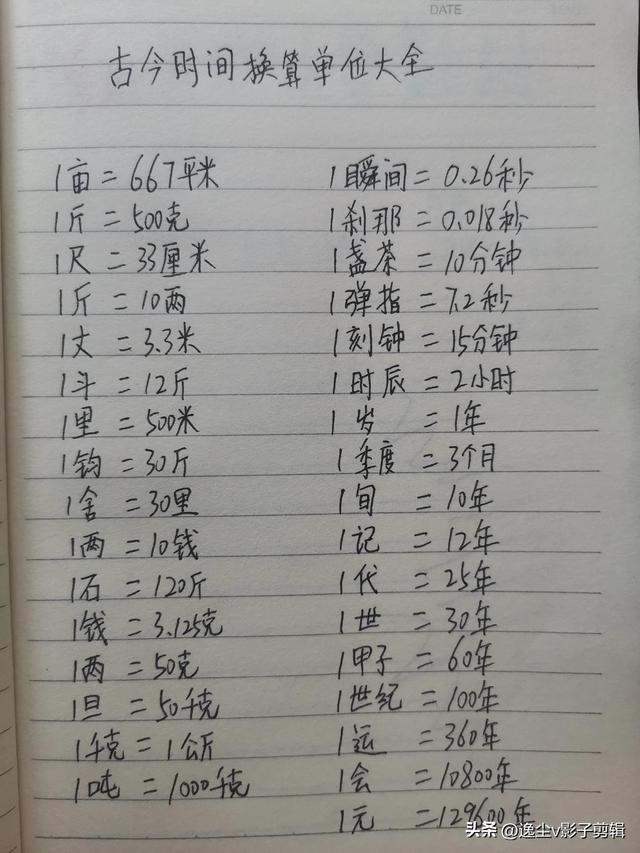 DATE
古今时间换算单位大全
1亩=667平米
1斤=500克
1尺=33厘米
1斤=10两
1丈=3.3米
1斗=12斤
1里=500米
1钧=30斤
1舍=30里
1两=10钱
1石=120斤
1钱=3.125克
1两=50克
1旦=50千克
1千克=1公斤
1吨=1000千克
1瞬间=0.26秒
1刹那=0.018秒
1盏茶=10分钟
1弹指=7.2秒
1刻钟=15分钟
1时辰=2小时
1岁=1年
1季度=3个月
1旬=10年
1记=12年
1代=25年
1世=30年
1甲子=60年
1世纪=100年
1运=360年
1会=10800年
1元=129600年
头条@逸尘v影子剪辑